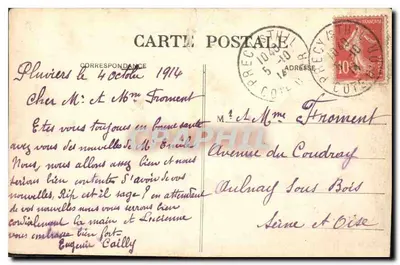 CARTE POSTALE
CORRESPONDANCE
ADRESSE
Pluviers le 4 octobre 1914
Cher Mr et Mme Froment
Etes vous toujours en bonne santé
avez vous des nouvelles de Mr
Nous, nous allons assez bien et nous
serions bien contents d'avoir de vos
nouvelles, Rip est il sage ? en attendant
de vos nouvelles nous vous serrons bien
cordialement la main et Lucienne
vous embrasse bien fort.
Eugénie Cailly
Mr et Mme Froment
Avenue du Coudray
Aulnay Sous Bois
Seine et Oise
PRECY
5 -10
14
COTE D'OR
10